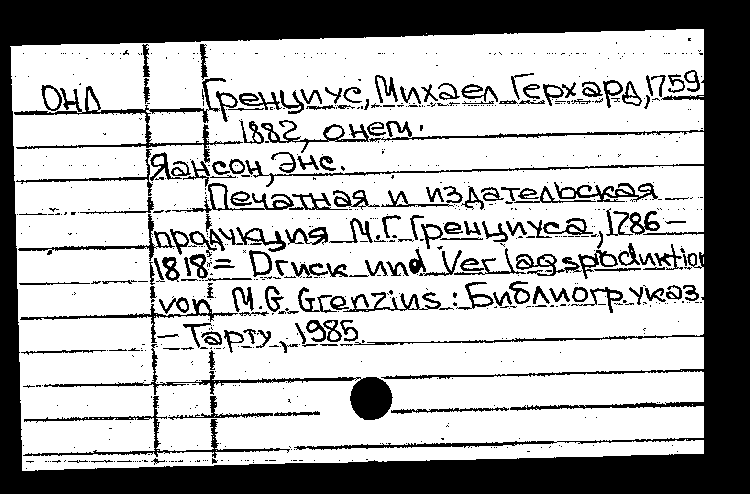 ОНЛ Гренциус, Михаел Герхард, 1759-
1882, о нем.
Яансон, Энс.
Печатная и издательская
продукция М.Г. Гренциуса, 1786 –
1818 = Druck und Verlagsproduktion
von M.G. Grenzius : Библиогр. указ.
– Тарту, 1985.